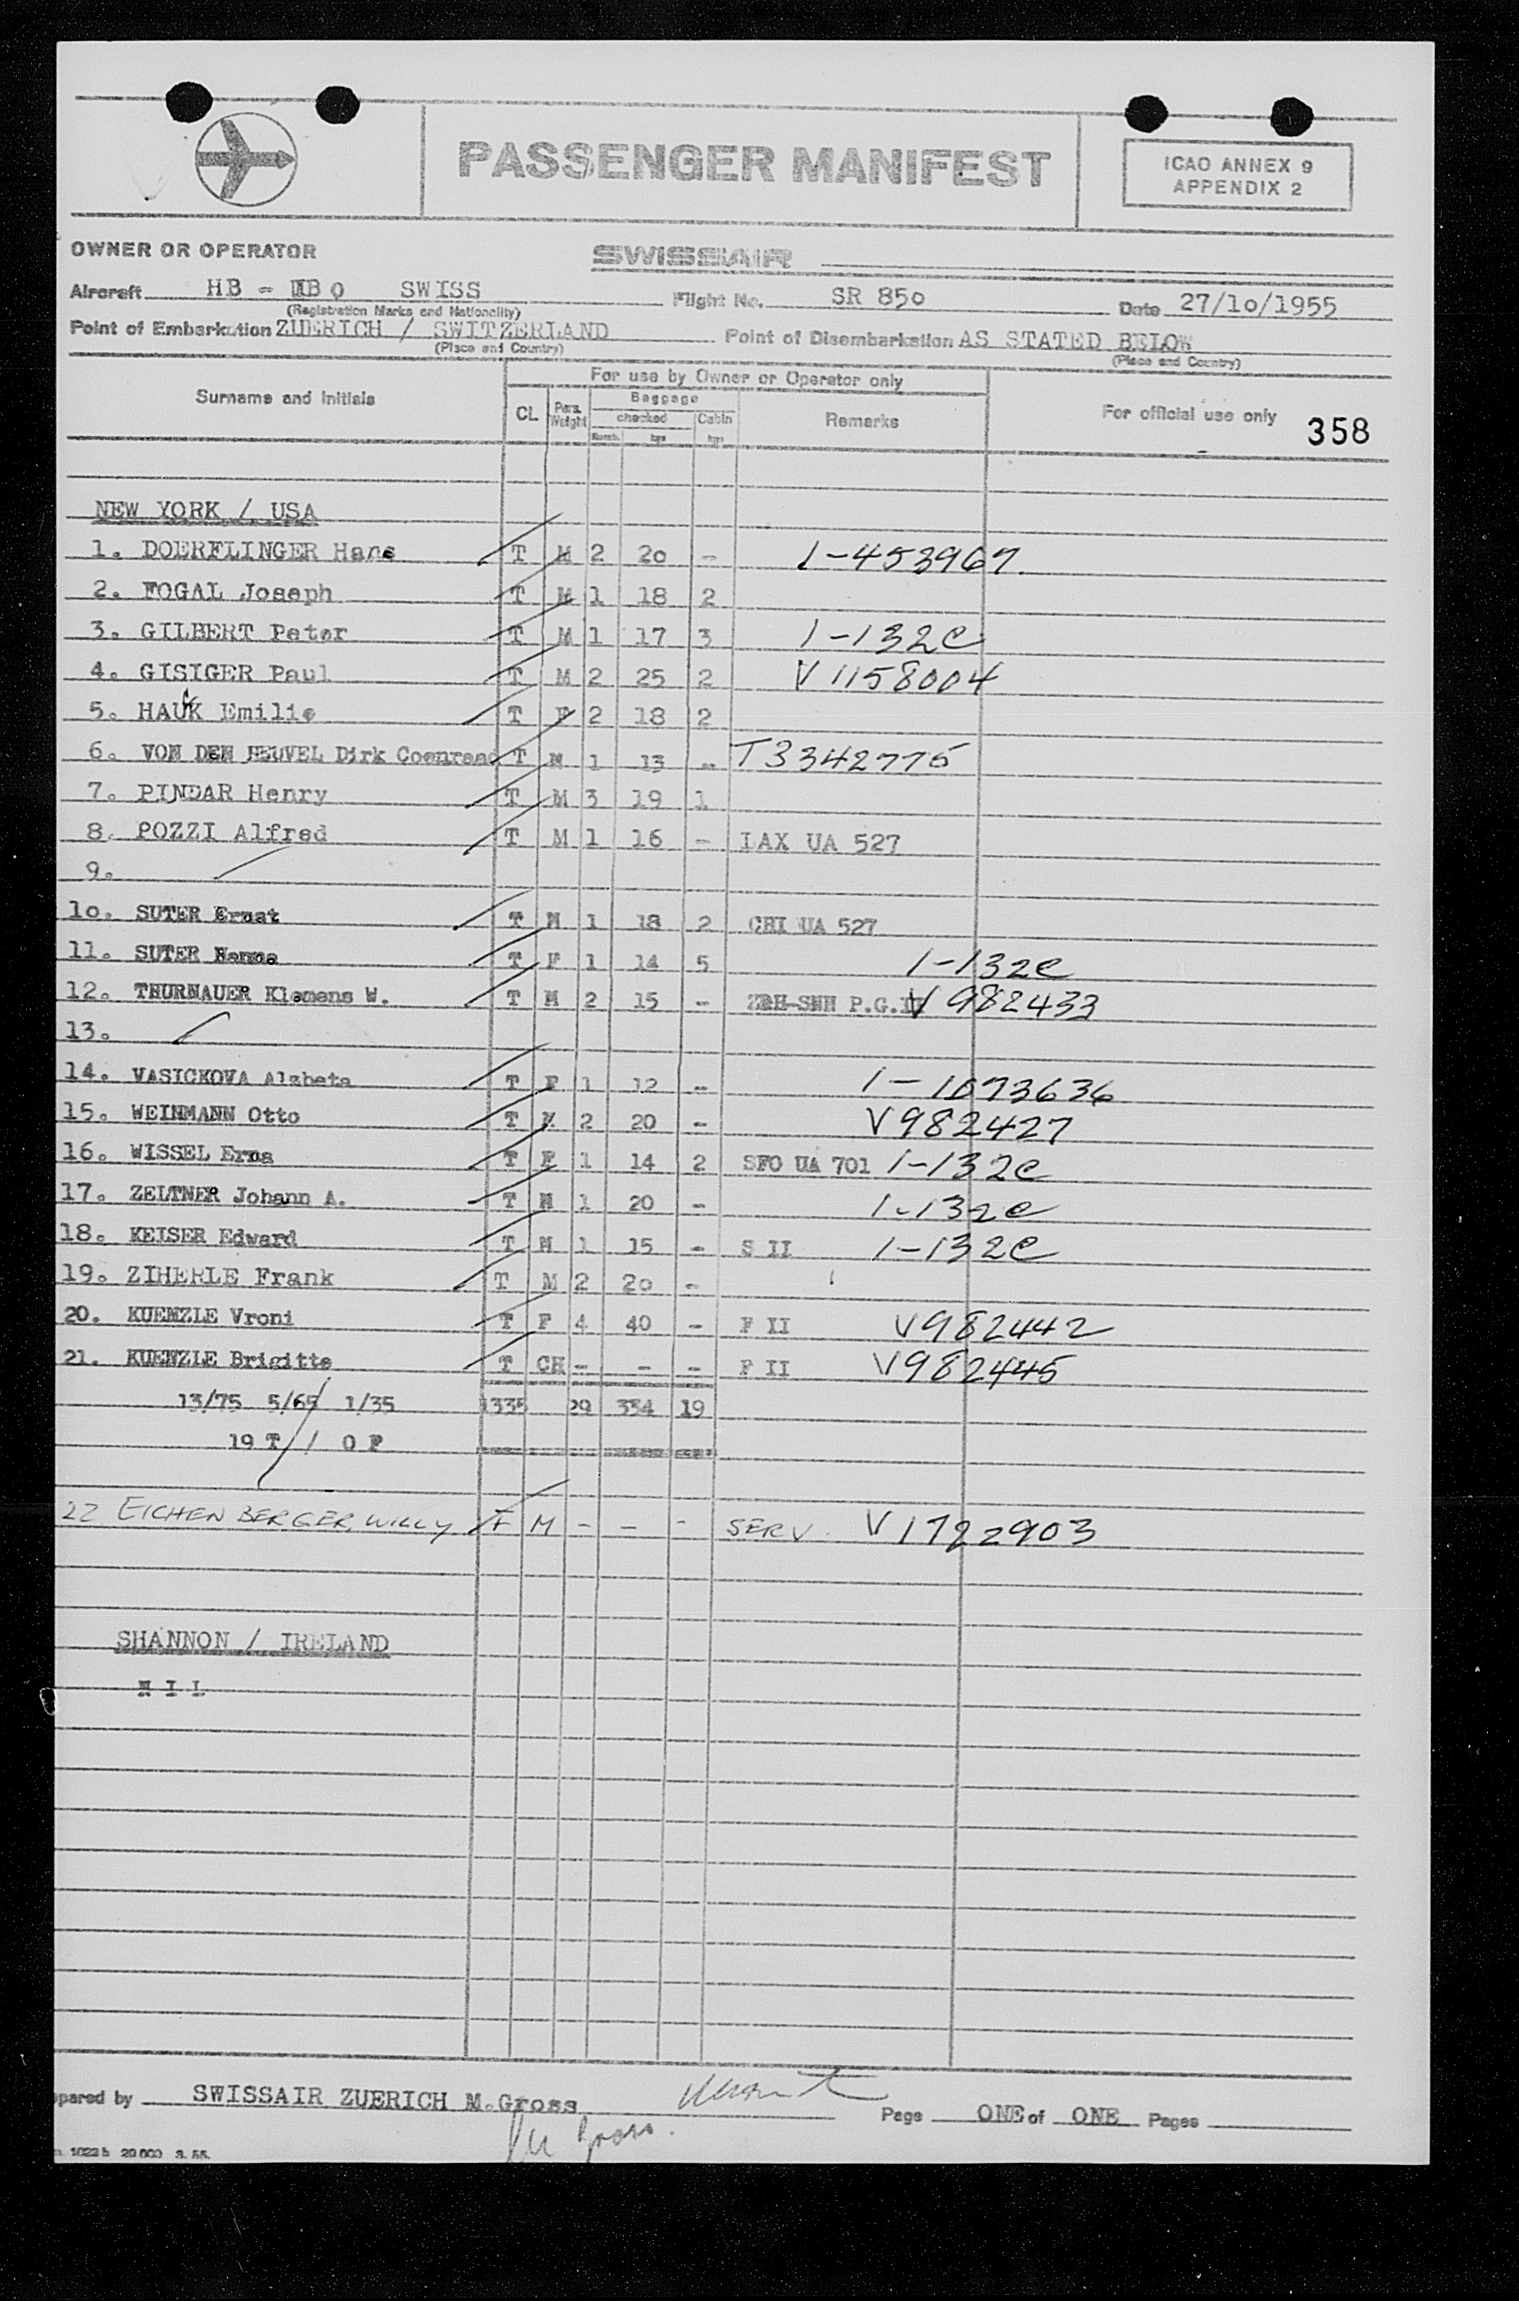 PASSENGER MANIFEST
ICAO ANNEX 9
APPENDIX 2
OWNER OR OPERATOR SWISSAIR
Aircraft HB - SWISS Flight No. SR 850 Date 27/10/1955
(Registration Marks and Nationality)
Point of Embarkation ZUERICH / SWITZERLAND Point of Disembarkation AS STATED BELOW
(Place and Country) (Place and Country)
Surname and Initials For use by Owner or Operator only For official use only 358
CL Pass. Weight Baggage Remarks
checked Cabin
Numb. kgs kgs
NEW YORK / USA
1. DOERFLINGER Hans T M 2 20 - 1-453967
2. FOGAL Joseph T M 1 18 2
3. GILBERT Peter T M 1 17 3 1-132C
4. GISIGER Paul T M 2 25 2 V 1158004
5. HAUK Emilie T F 2 18 2
6. VON DEN HEUVEL Dirk Coenraad T M 1 13 - T3342775
7. PINDAR Henry T M 3 19 1
8. POZZI Alfred T M 1 16 - LAX UA 527
9.
10. SUTER Ernst T M 1 18 2 CHI UA 527
11. SUTER Hanna T F 1 14 5 1-132C
12. THURNAUER Klemens W. T M 2 15 - P.G. V 982433
13.
14. VASICKOVA Alzbeta T F 1 12 - 1-1073636
15. WEINMANN Otto T M 2 20 - V982427
16. WISSEL Erna T F 1 14 2 SFO UA 701 1-132C
17. ZELTNER Johann A. T M 1 20 - 1-132C
18. KEISER Edward T M 1 15 - S II 1-132C
19. ZIHERLE Frank T M 2 20 -
20. KUENZLE Vroni T F 4 40 - F II V982442
21. KUENZLE Brigitte T CH - - - F II V982445
13/75 5/65 1/35 1335 29 334 19
19 T / 0 F
22 EICHENBERGER, WILLY F M - - - SERV. V1722903
SHANNON / IRELAND
N I L
pared by SWISSAIR ZUERICH M.Gross
M Gross.
Page ONE of ONE Pages
1022 b 20 000 3. 55.